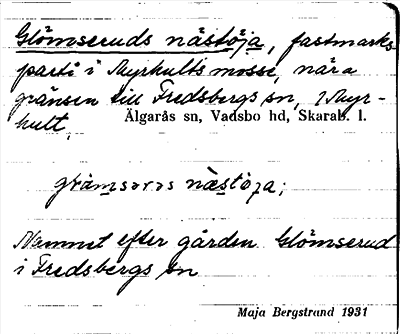 Glömseruds nästöja, fastmarks
parti i Myrhults mosse, nära
gränsen till Fredsbergs sn, i Myr-
hult,
Älgarås sn, Vadsbo hd, Skarab. l.
næstöja;
Namnet efter gården Glömserud
i Fredsbergs sn
Maja Bergstrand 1931